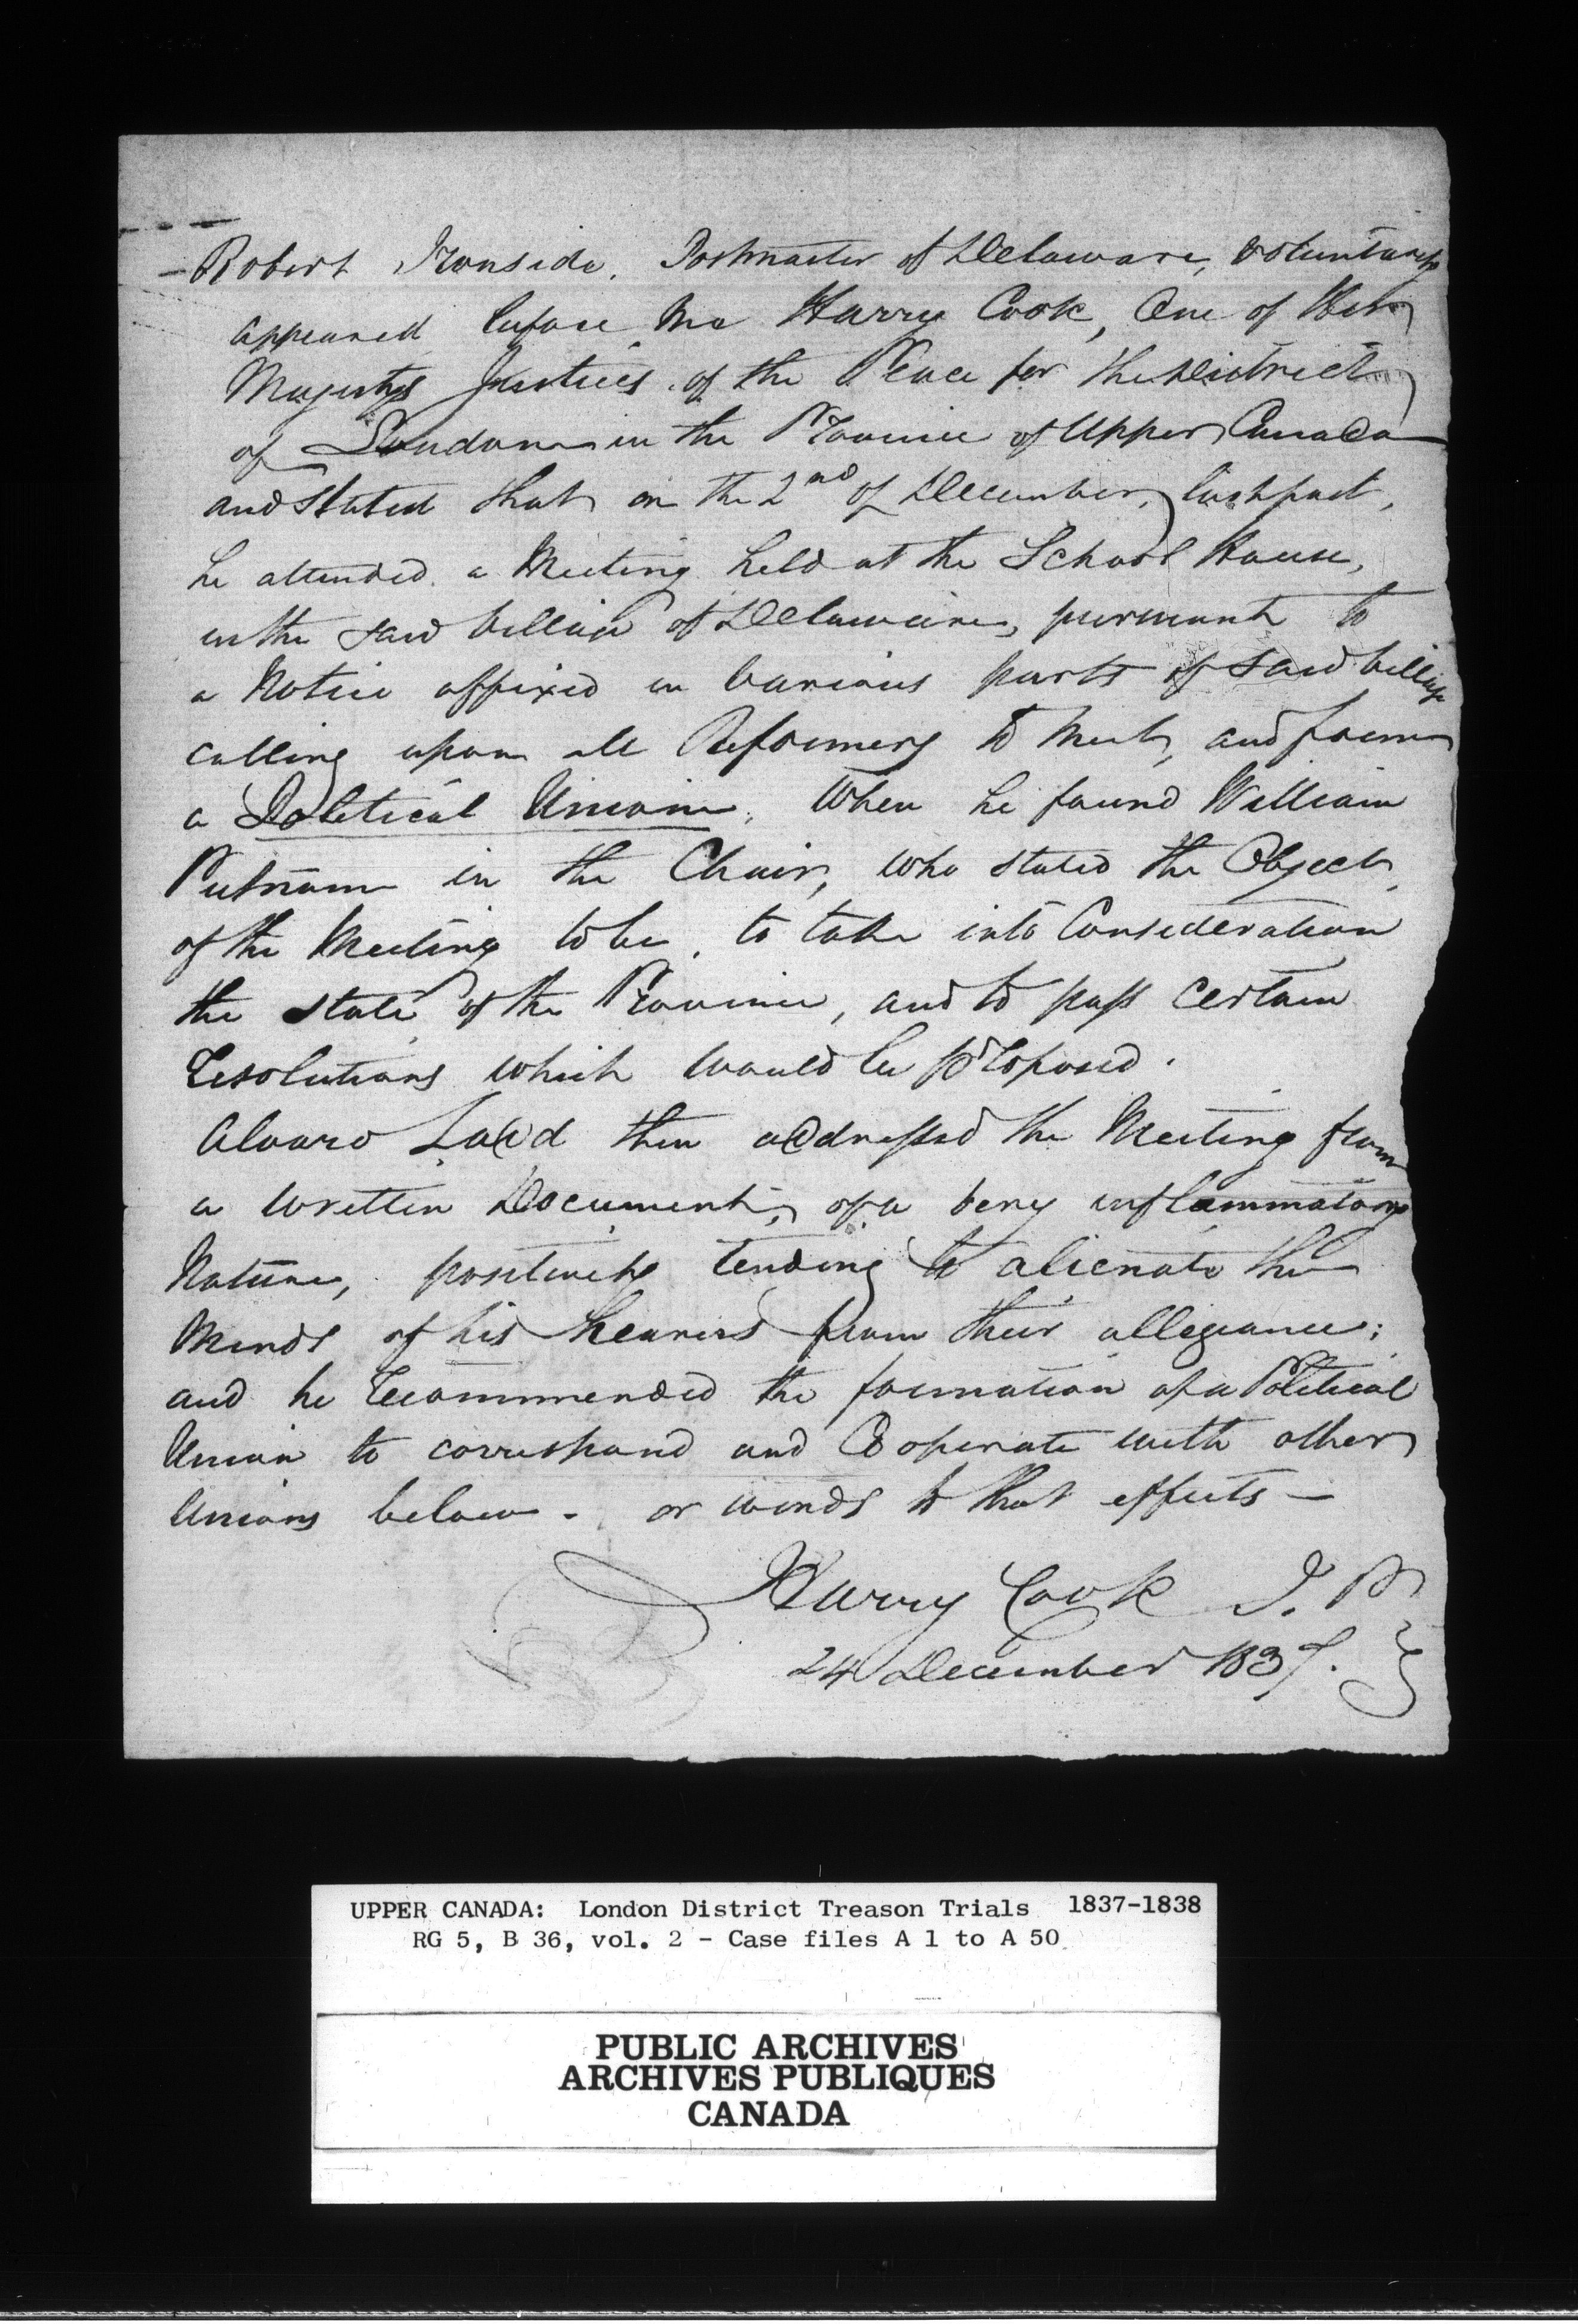 Robert Ironside. Postmaster of Delaware, voluntarily
appeared before me Harry Cook, One of Her
Majestys Justices of the Peace for the District
of London in the Province of Upper Canada
and stated that on the 2nd of December, last past,
he attended a Meeting held at the School House,
in the said Village of Delaware, pursuant to
a Notice affixed in various parts of said Village
calling upon all Reformers to meet, and form
a Political Union, When he found William
Putnam in the Chair, who stated the Object,
of the Meeting to be, to take into Consideration
the state of the Province, and to pass certain
Resolutions which would be proposed.
Alvaro Ladd then addressed the Meeting from
a written Document, of a very inflammatory
Nature, positively tending to alienate the
minds of his hearers from their allegiance;
and he recommended the formation of a Political
Union to correspond and Cooperate with other
Unions below - or words to that effects -
Harry Cook J. P
24 December 1837.
UPPER CANADA: London District Treason Trials 1837-1838
RG 5, B 36, vol. 2 - Case files A 1 to A 50
PUBLIC ARCHIVES
ARCHIVES PUBLIQUES
CANADA